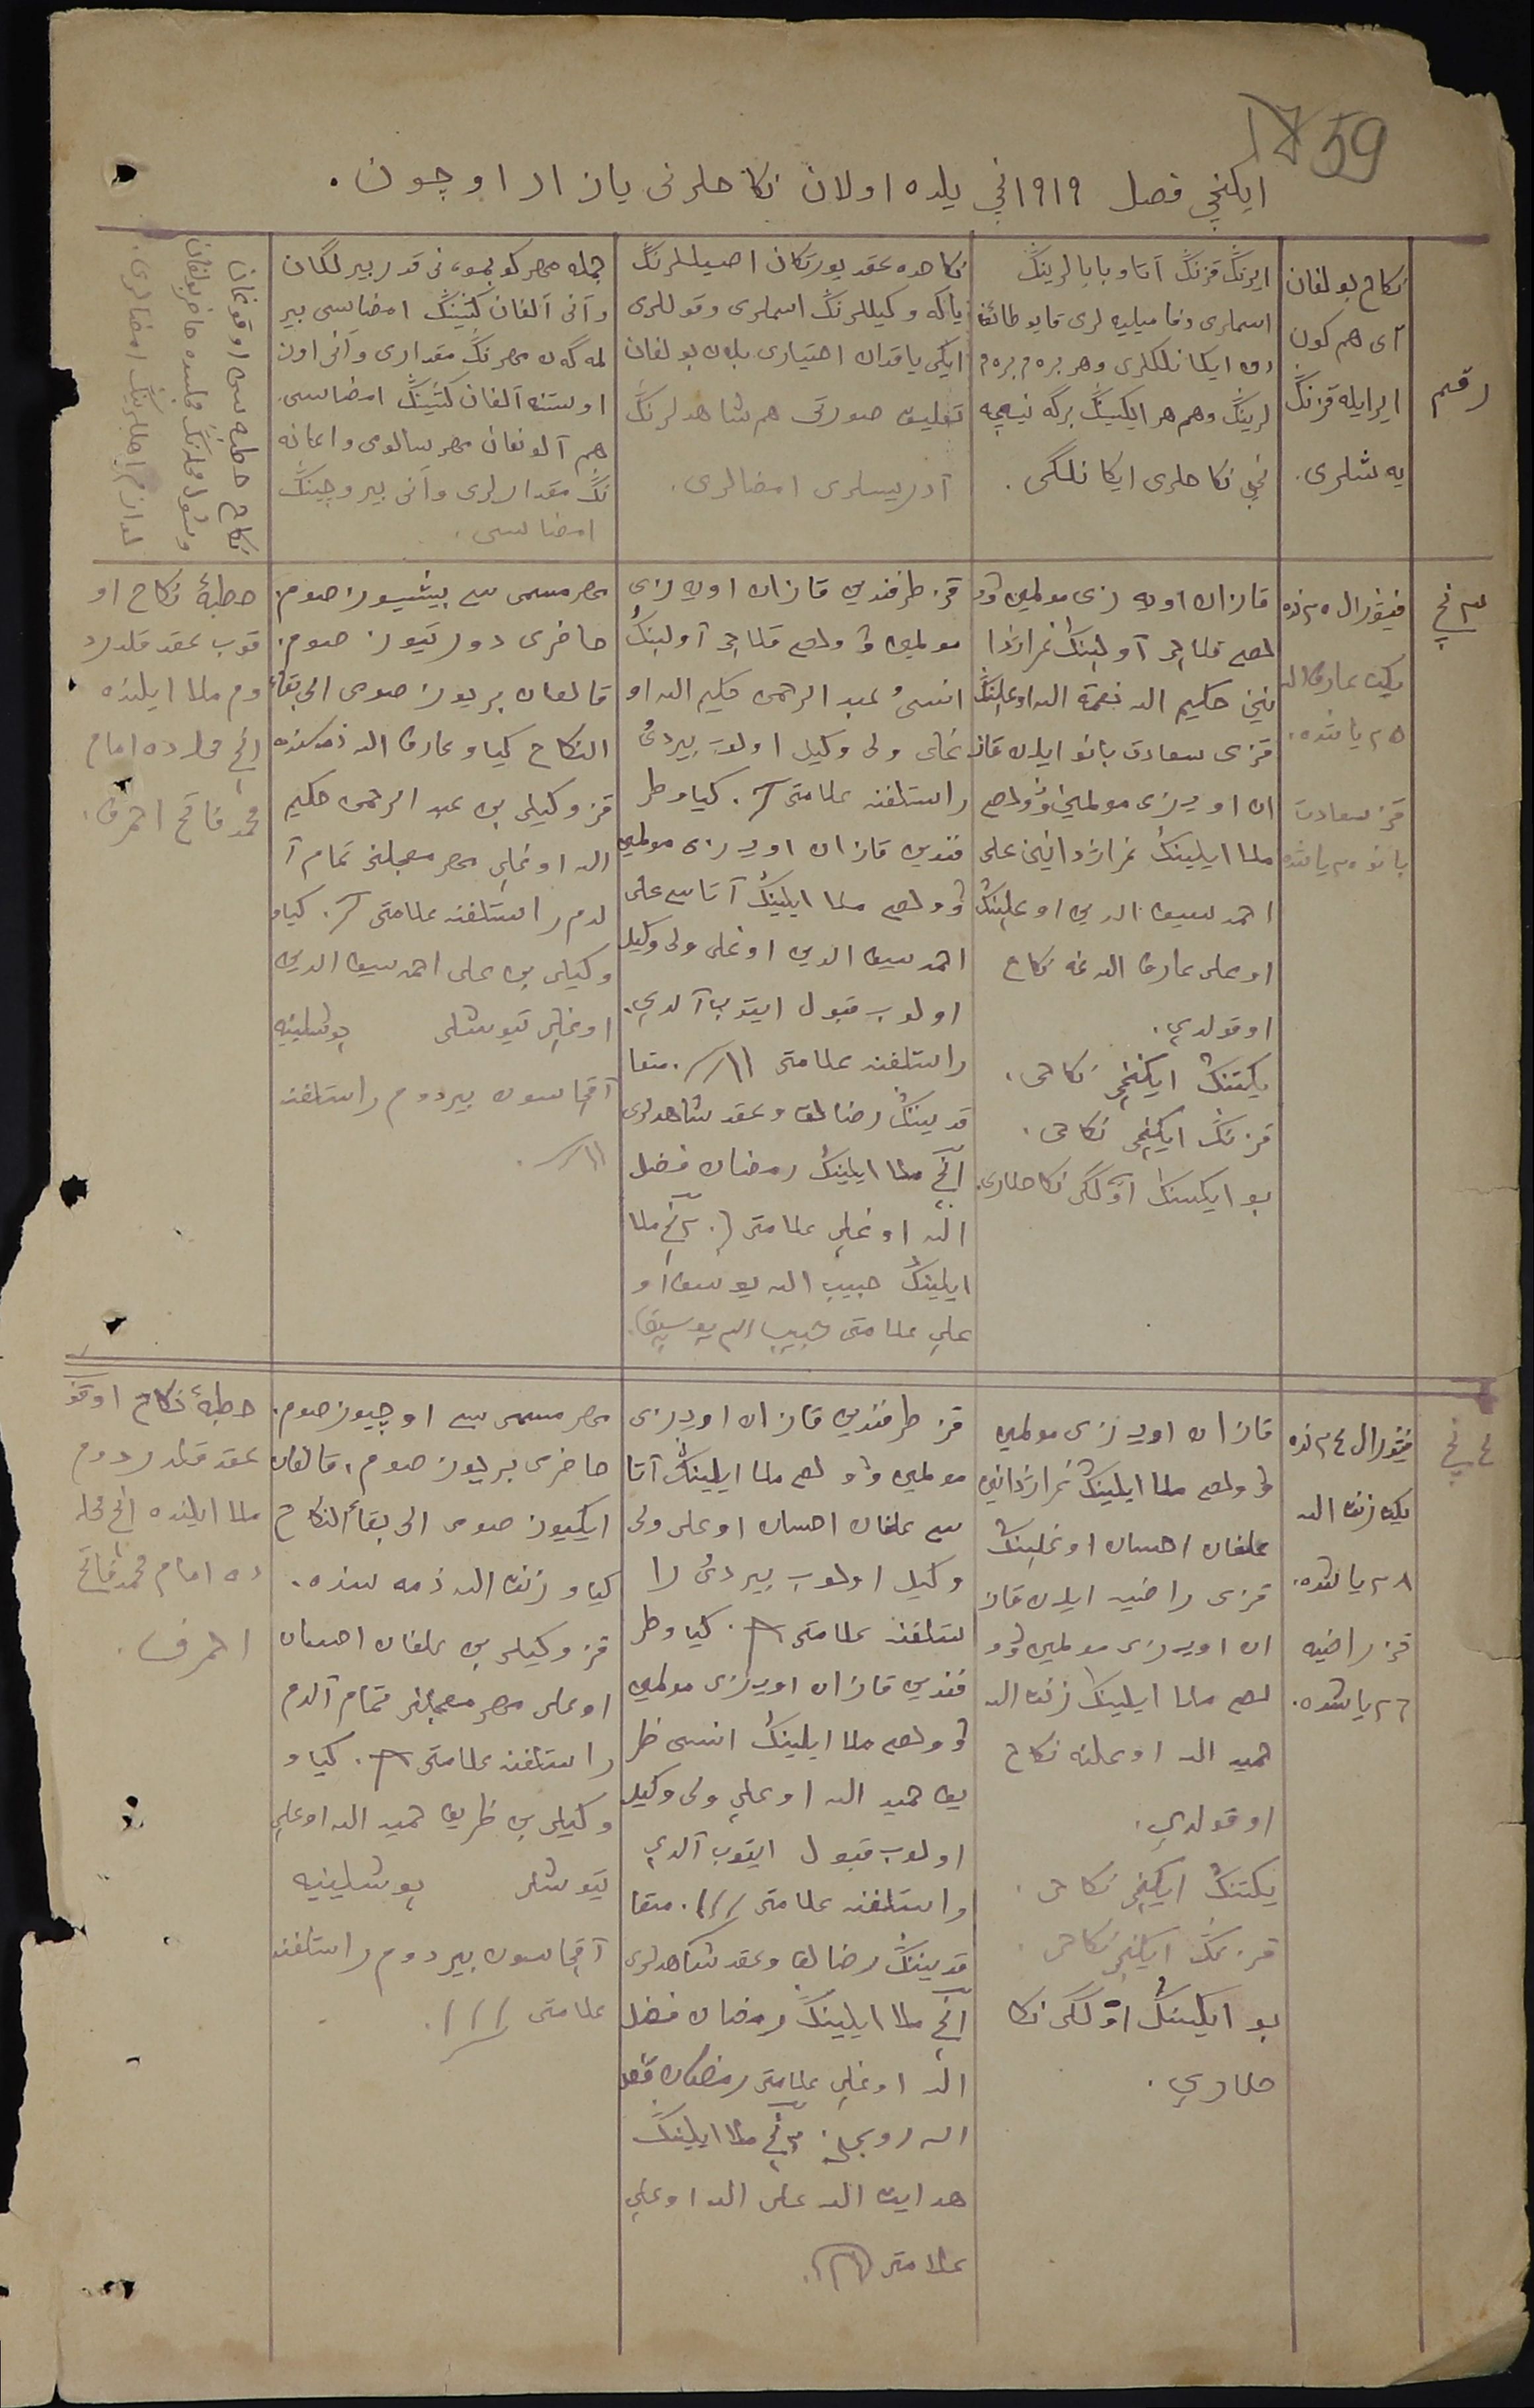 59
ایکنچی فصل ۱۹۱۹نچی یلده اولان نکاحلرنی یازار اوچون.
رقم
نکاح بولغان
آی هم کون
ایرایله قزنڭ
یه شلری.
ایرنڭ قزنڭ آتا و بابالرینڭ
اسملری و فامیلیه لری قایو طائفه
دن ایکانلکلری و هر برم برم
لرینڭ و هم هر ایکیسنڭ برگه نیچه
نچی نکاحلری ایکانلگی.
نکاحده عقد یورتکان اصیللرنڭ
یاکه وکیللرنڭ اسملری و قوللری
ایکی یاقدان اختیاری بلان بولغان
تعلیق صورتی هم شاهدلرنڭ
آدریسلری امضالری.
جمله مهر کوبمو، نی قدر بیرلگان
و آنی آلغان کشینڭ امضاسی بیر
لمه گان مهرنڭ مقداری و آنی اون
اوستنه آلغان کشینڭ امضاسی.
هم آلونغان مهر سالومی و اعانه
نڭ مقدارلری و آنی بیروچینڭ
امضاسی.
نکاح خطبه سی اوقوغان
و شول محلرنڭ مجلسده حاضر بولغان
امضالری.
۳ نچی
فیورال ۲۰ نده
یکت عارف الله
۲۵ یاشده.
قز سعادت
بانو ۲۰ یاشده
قازان اویه زی مولمین وو
لصی قلاچی آولینڭ غراژدا
نین حکیم الله نعمة الله اوغلینڭ
قزی سعادت بانو ایله قاز
ان اویه زی مولمین وولصی
ملا ایلینڭ غراژدانین علی
احمد سیف الدین اوغلینڭ
اوغلی عارف الله غه نکاح
اوقولدی.
یکتنڭ ایکنچی نکاحی.
قزنڭ ایکنچی نکاحی.
بو ایکیسنڭ اوّلگی نکاحلاری.
قز طرفندن قازان اویه زی
مولمین وولصی قلاچی آولینڭ
انسی عبد الرحمن حکیم الله او
غلی ولی وکیل اولوب بیردی
راستلغنه علامتی. کیاو طر
فندن قازان اویه زی مولمین
وولصی ملا ایلینڭ آتاسی علی
احمد سیف الدین اوغلی ولی وکیل
اولوب قبول ایتوب آلدی.
راستلغنه علامتی ۱۱. متعا
قدینڭ رضالق و عقد شاهدلری
۱نچی ملا ایلینڭ رمضان فضل
الله اوغلی علامتی. ۲نچی ملا
ایلینڭ حبیب الله یوسف او
غلی علامتی حبیب الله یوسیف.
مهر مسمی سی بیشیوز صوم.
حاضری دورتیوز صوم.
قالغان بریوز صومی الی بقاء
النکاح کیاو عارف الله ذمه سنده
قز وکیلی بن عبد الرحمن حکیم
الله اوغلی مهر معجلنی تمام آ
لدم راستلغنه علامتی. کیاو
وکیلی بن علی احمد سیف الدین
اوغلی تیوشلی پوشلینه
آقچاسون بیردوم راستلغنه
۱۱.
خطبهٔ نکاح او
قوب عقد قلدرد
وم ملا ایلنده
۱نچی محلرده امام
محمد فاتح احمرف.
۴ نچی
فیورال ۲۴ نده
یکت زنف الله
۲۸ یاشده.
قز راضیه
۲۶ یاشده.
قازان اویه زی مولمین
وولصی ملا ایلینڭ غراژدانین
علفان احسان اوغلینڭ
قزی راضیه ایله قاز
ان اویه زی مولمین وو
لصی ملا ایلینڭ زنف الله
حمید الله اوغلنه نکاح
اوقولدی.
یکتنڭ ایکنچی نکاحی.
قزنڭ ایکنچی نکاحی.
بو ایکیسنڭ اوّلگی نکا
حلاری.
قز طرفندن قازان اویه زی
مولمین وولصی ملا ایلینڭ آتا
سی علفان احسان اوغلی ولی
وکیل اولوب بیردی را
ستلغنه علامتی. کیاو طر
فندن قازان اویه زی مولمین
وولصی ملا ایلینڭ انسی ظر
یف حمید الله اوغلی ولی وکیل
اولوب قبول ایتوب آلدی
راستلغنه علامتی ///. متعا
قدینڭ رضالق و عقد شاهدلری
۱نچی ملا ایلینڭ رمضان فضل
الله اوغلی علامتی رمضان فضل
الله. ۲نچی ملا ایلینڭ
هدایت الله علی الله اوغلی
علامتی.
مهر مسمی سی اوچیوز صوم.
حاضری بریوز صوم. قالغان
ایکییوز صومی الی بقاء النکاح
کیاو زنف الله ذمه سنده.
قز وکیلی بن علفان احسان
اوغلی مهر معجلنی تمام آلدم
راستلغنه علامتی. کیاو
وکیلی بن ظریف حمید الله اوغلی
تیوشلی پوشلینه
آقچاسون بیردوم راستلغنه
علامتی ///.
خطبهٔ نکاح اوقو
عقد قلدردوم
ملا ایلنده ۱نچی محلر
ده امام محمد فاتح
احمرف.